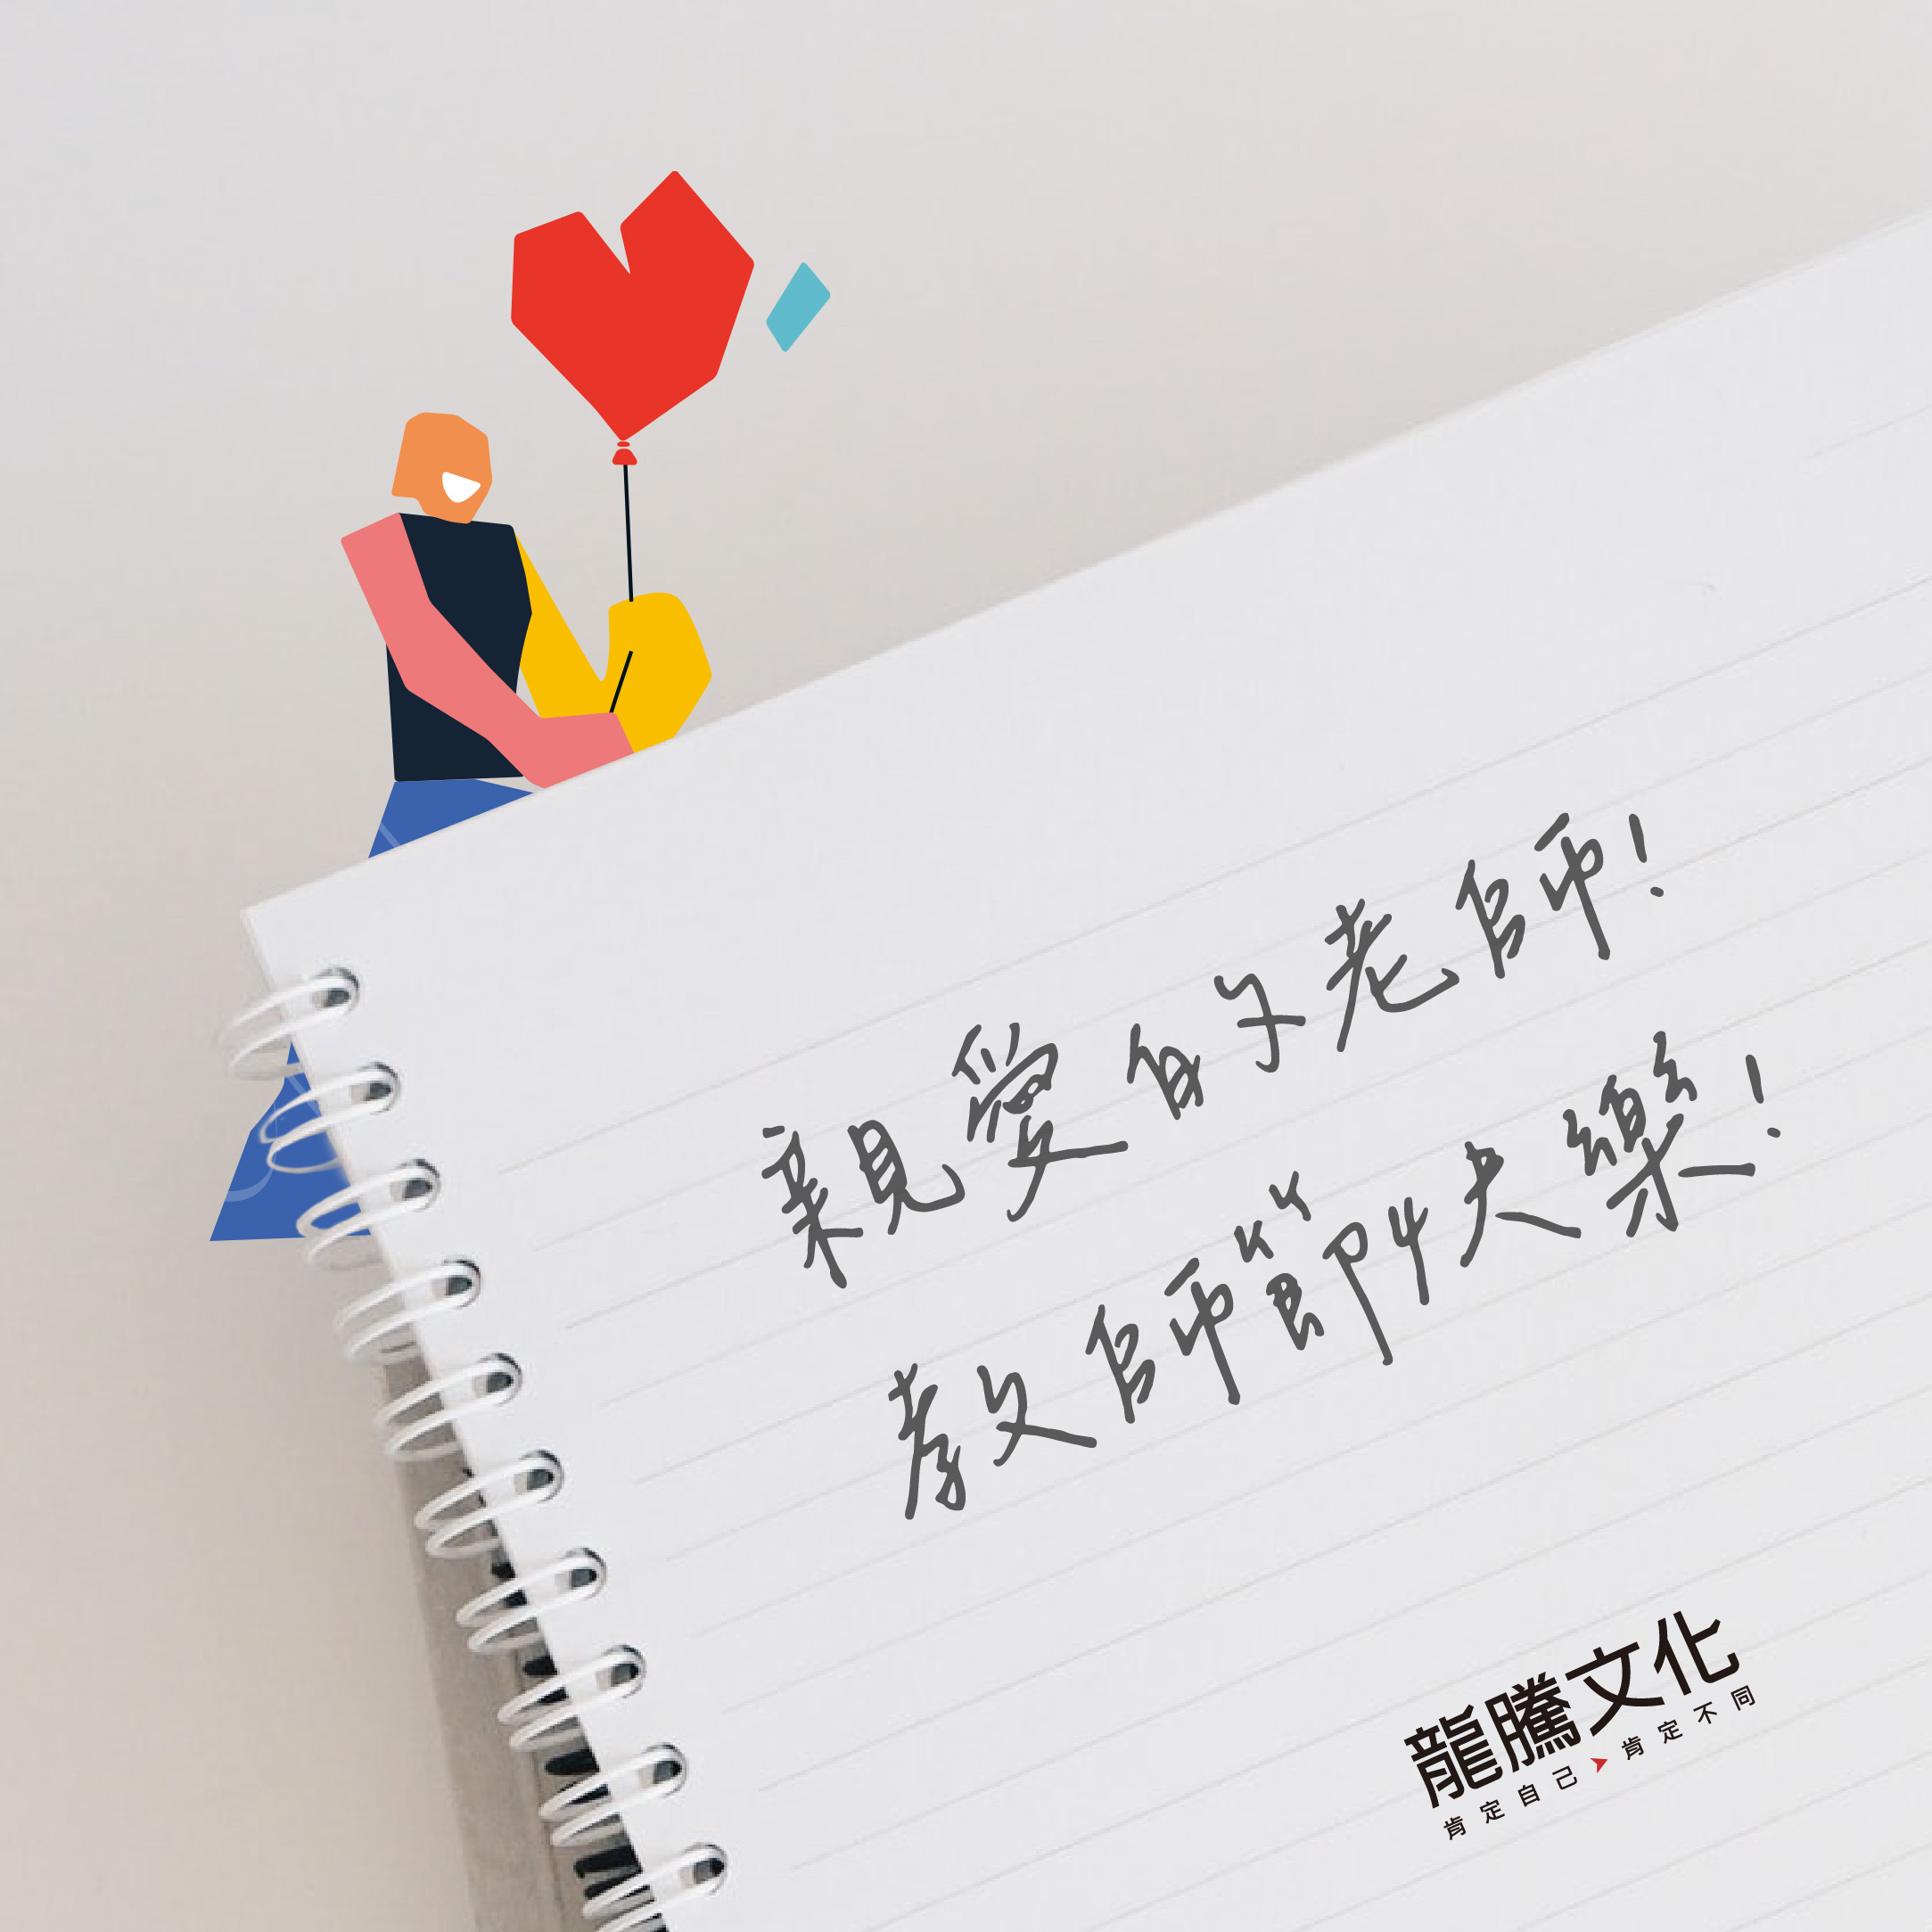 親愛的老師!
教師節快樂!
龍騰文化
肯定自己➤肯定不同